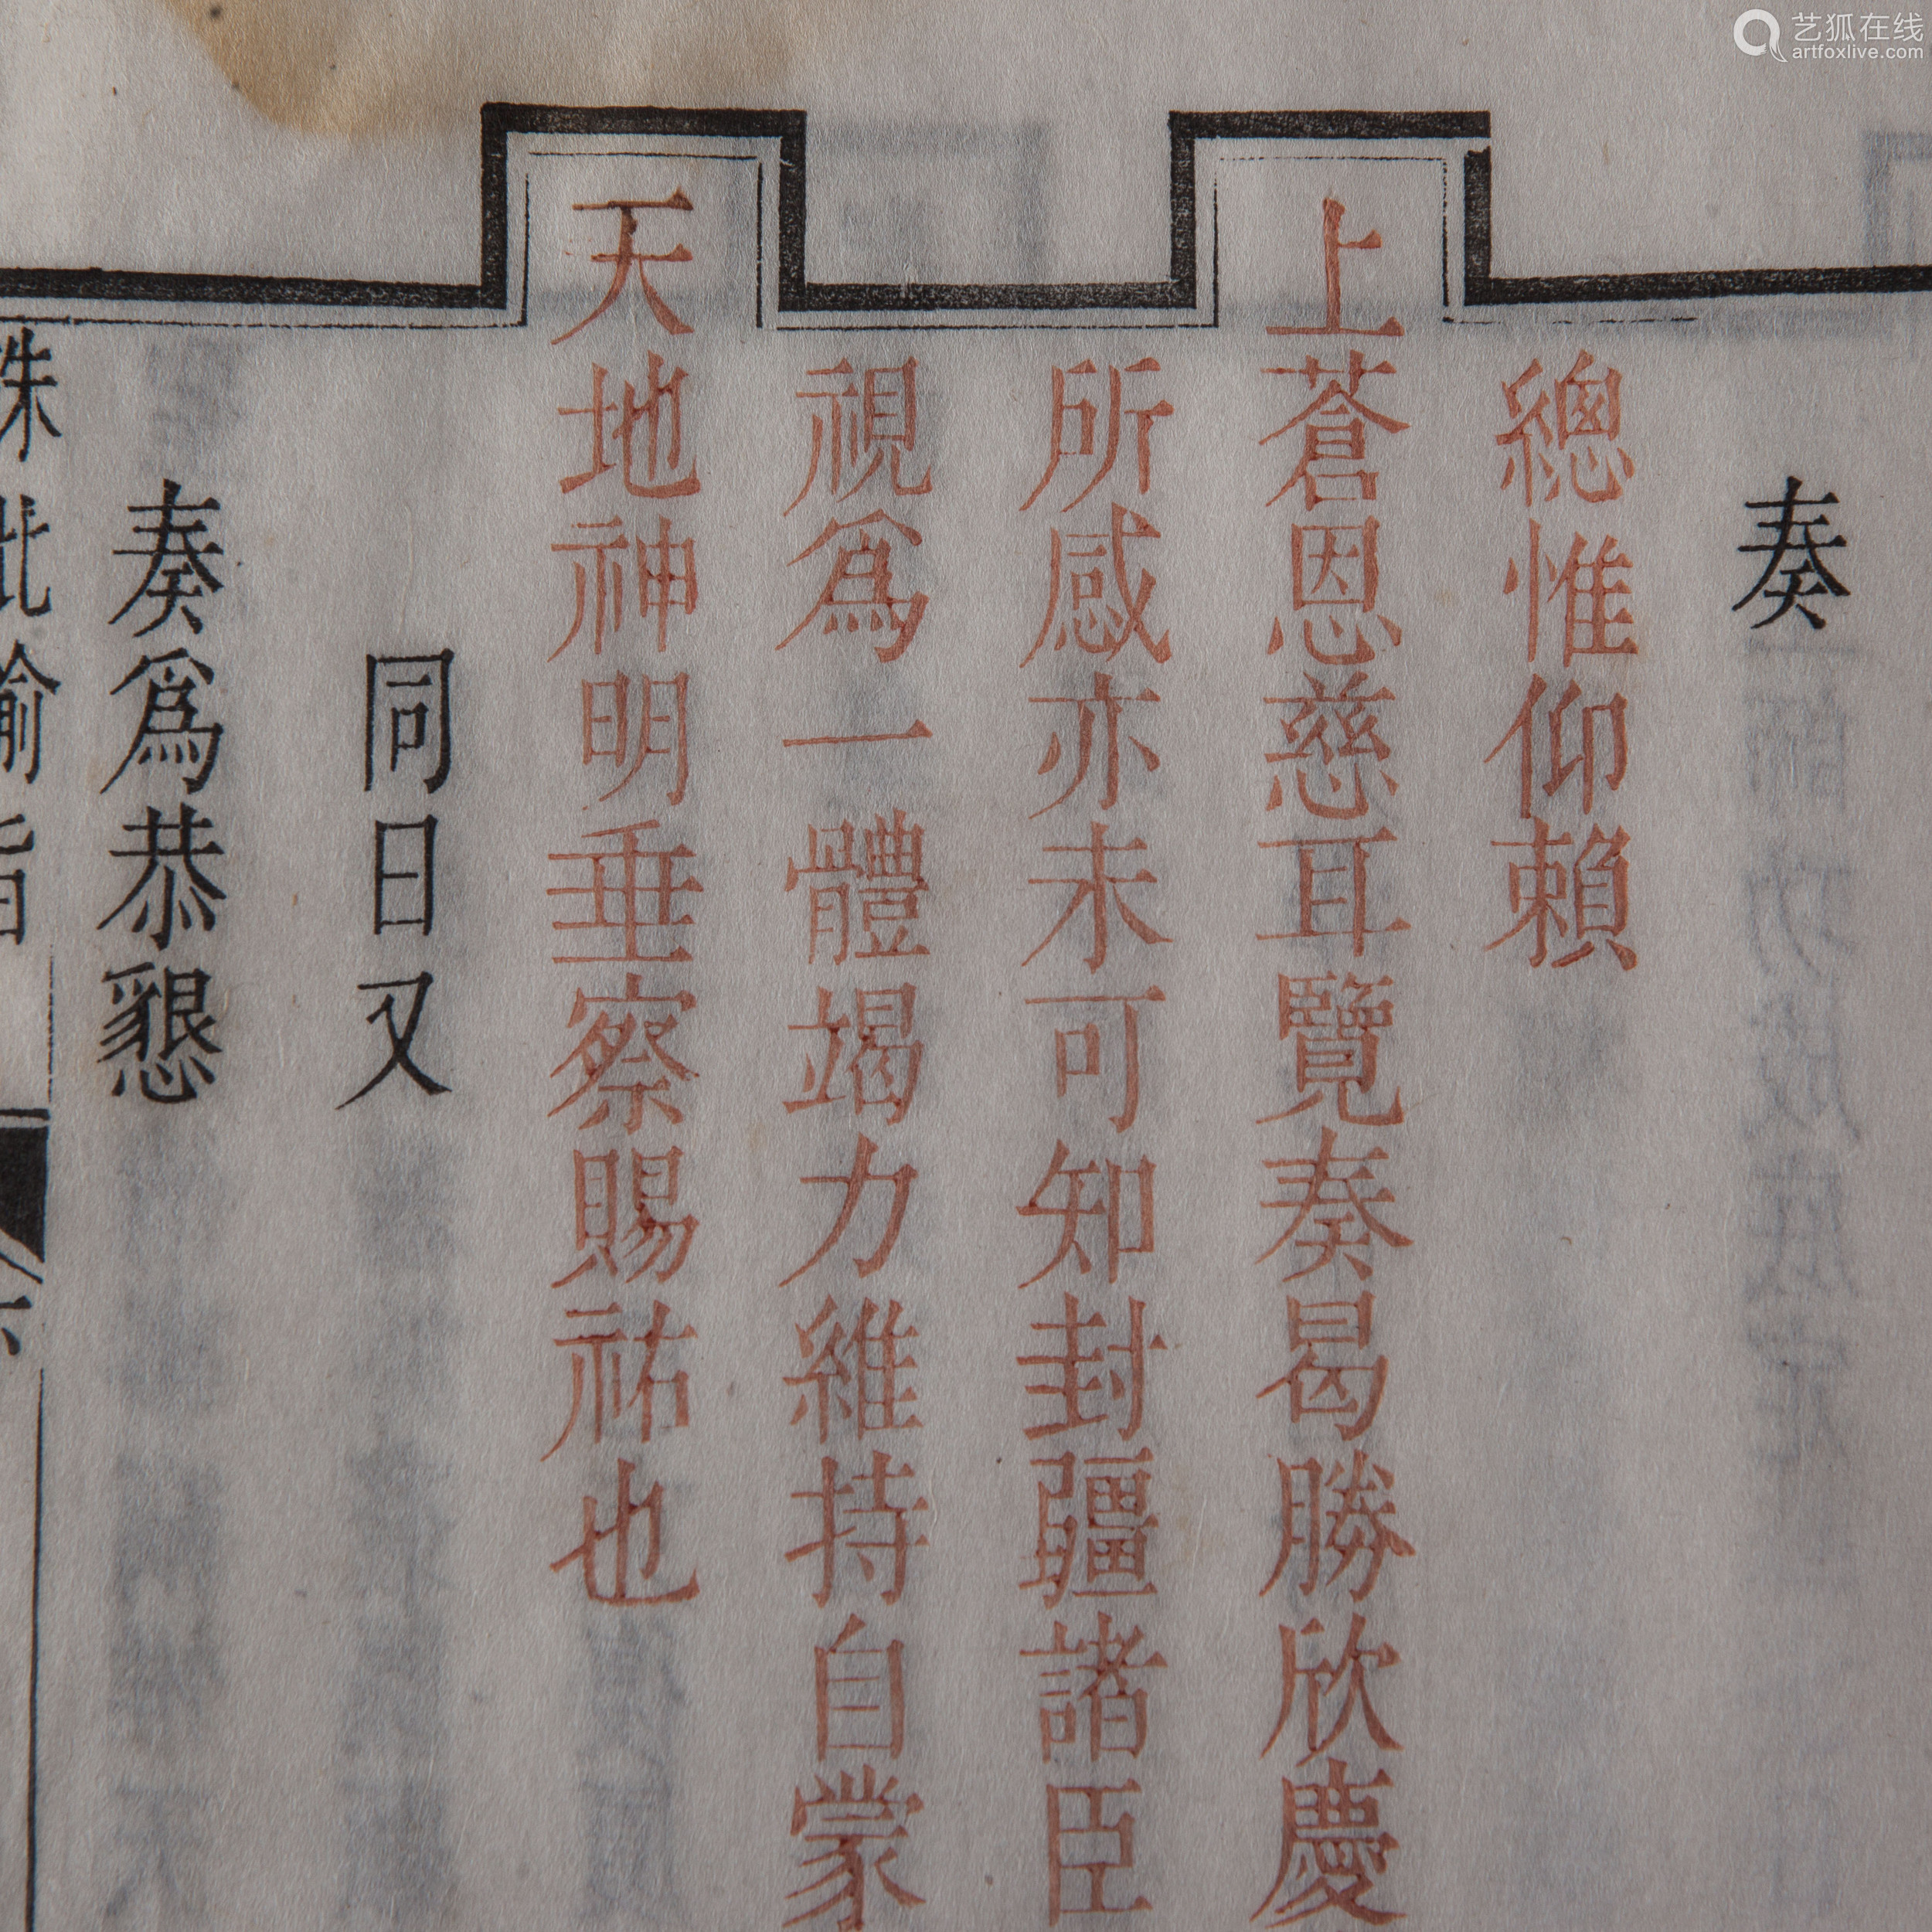 艺狐在线
artfoxlive.com
奏
總惟仰賴
上蒼恩慈耳覽奏曷勝欣慶
所感亦未可知封疆諸臣
視為一體竭力維持自蒙
天地神明垂察賜祐也
同日又
奏為恭懇
硃批諭旨